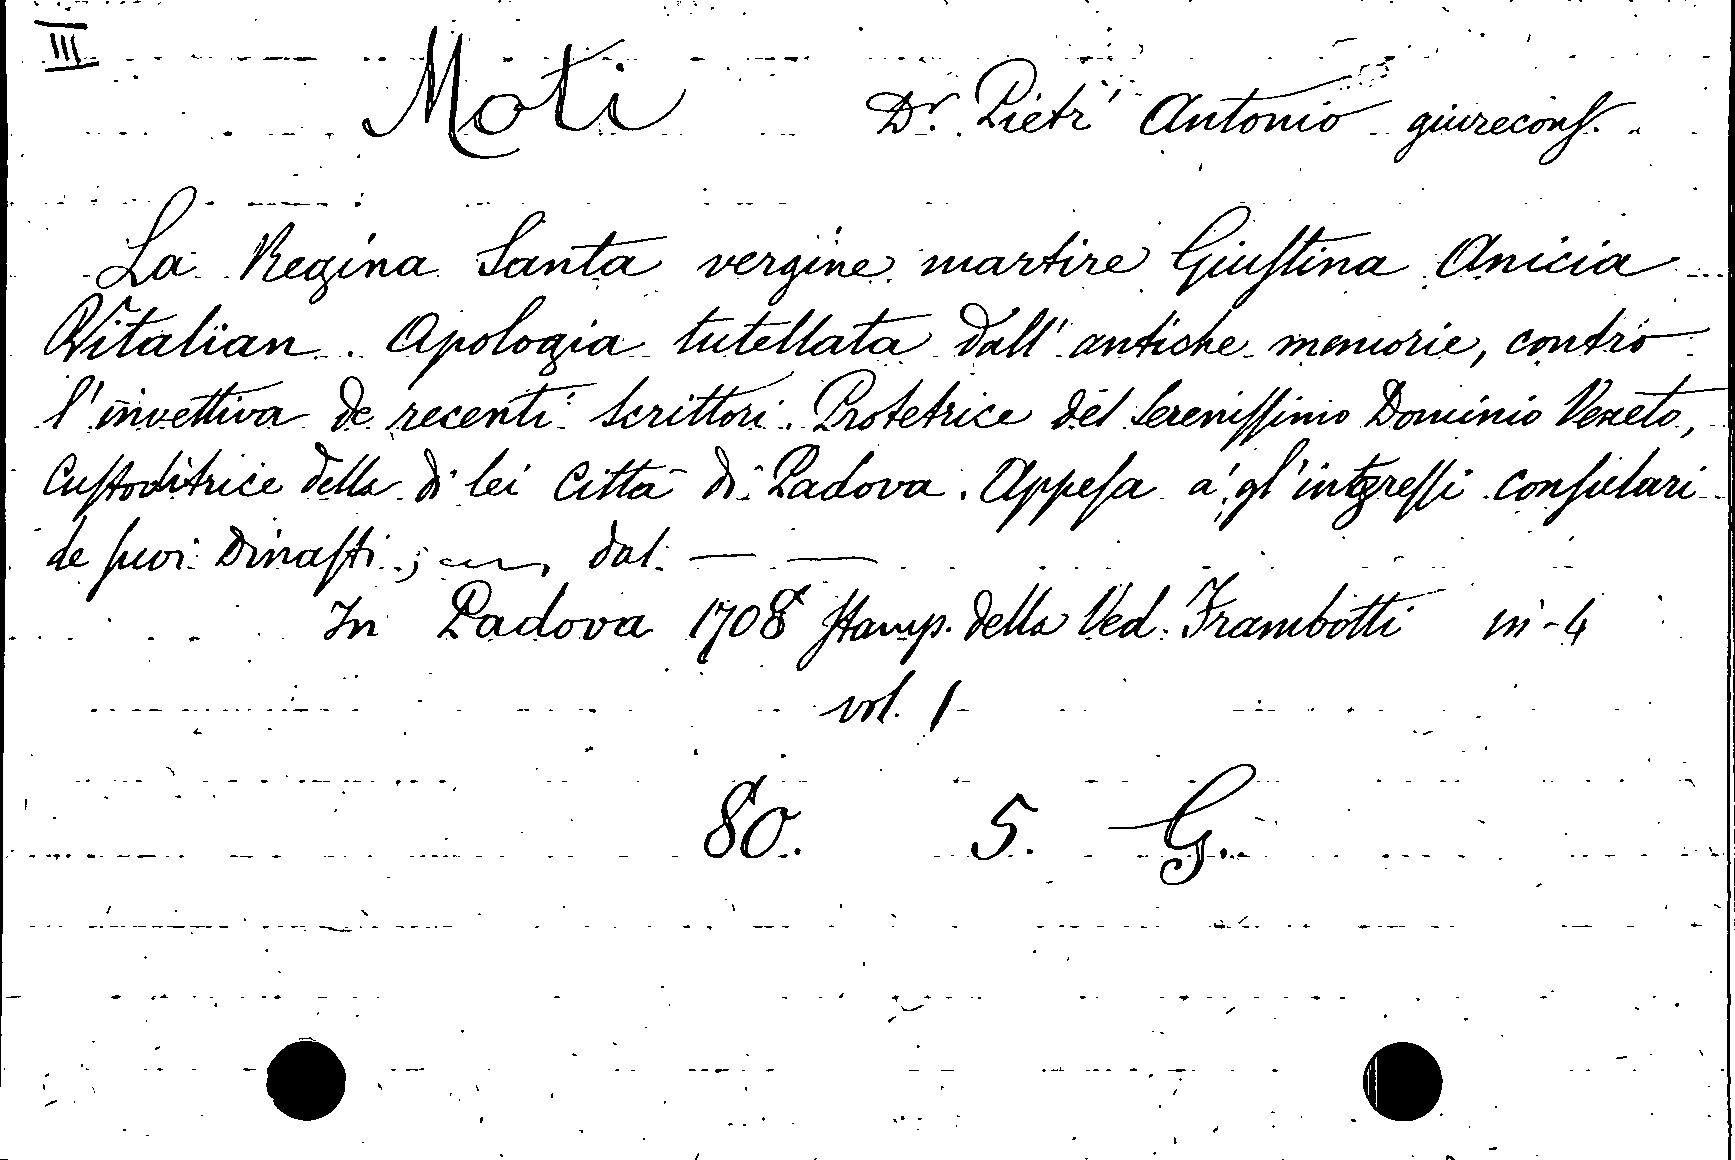 III
Moti Dr. Pietr' Antonio giureconſ.
La Regina Santa vergine martire Giuſtina Anicia
Vitalian. Apologia tutellata dall' antiche memorie, contro
l'invettiva de recenti scrittori. Protetrice del Sereniſſimo Dominio Veneto,
Cuſtoditrice della di lei Città di Padova. Appeſa a' gl' ingreſſi conſulari
de ſuoi Dinaſti ; dal. — —
In Padova 1708 ſtamp. della Ved. Frambotti in-4
vol. 1
80. 5. G.